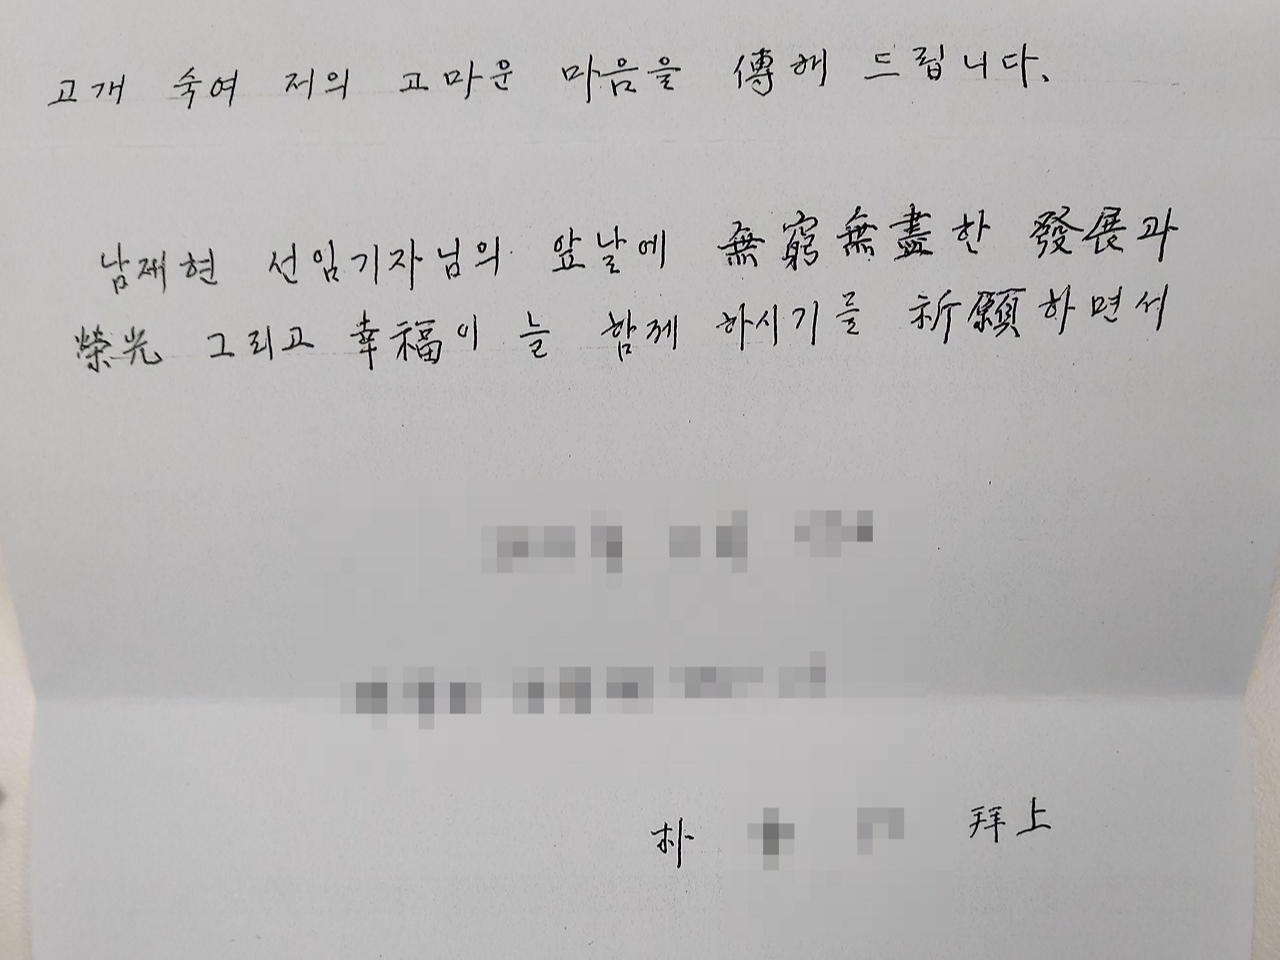 고개 숙여 저의 고마운 마음을 傳해 드립니다.
남재현 선임기자님의 앞날에 無窮無盡한 發展과
榮光 그리고 幸福이 늘 함께 하시기를 祈願하면서
朴 拜上